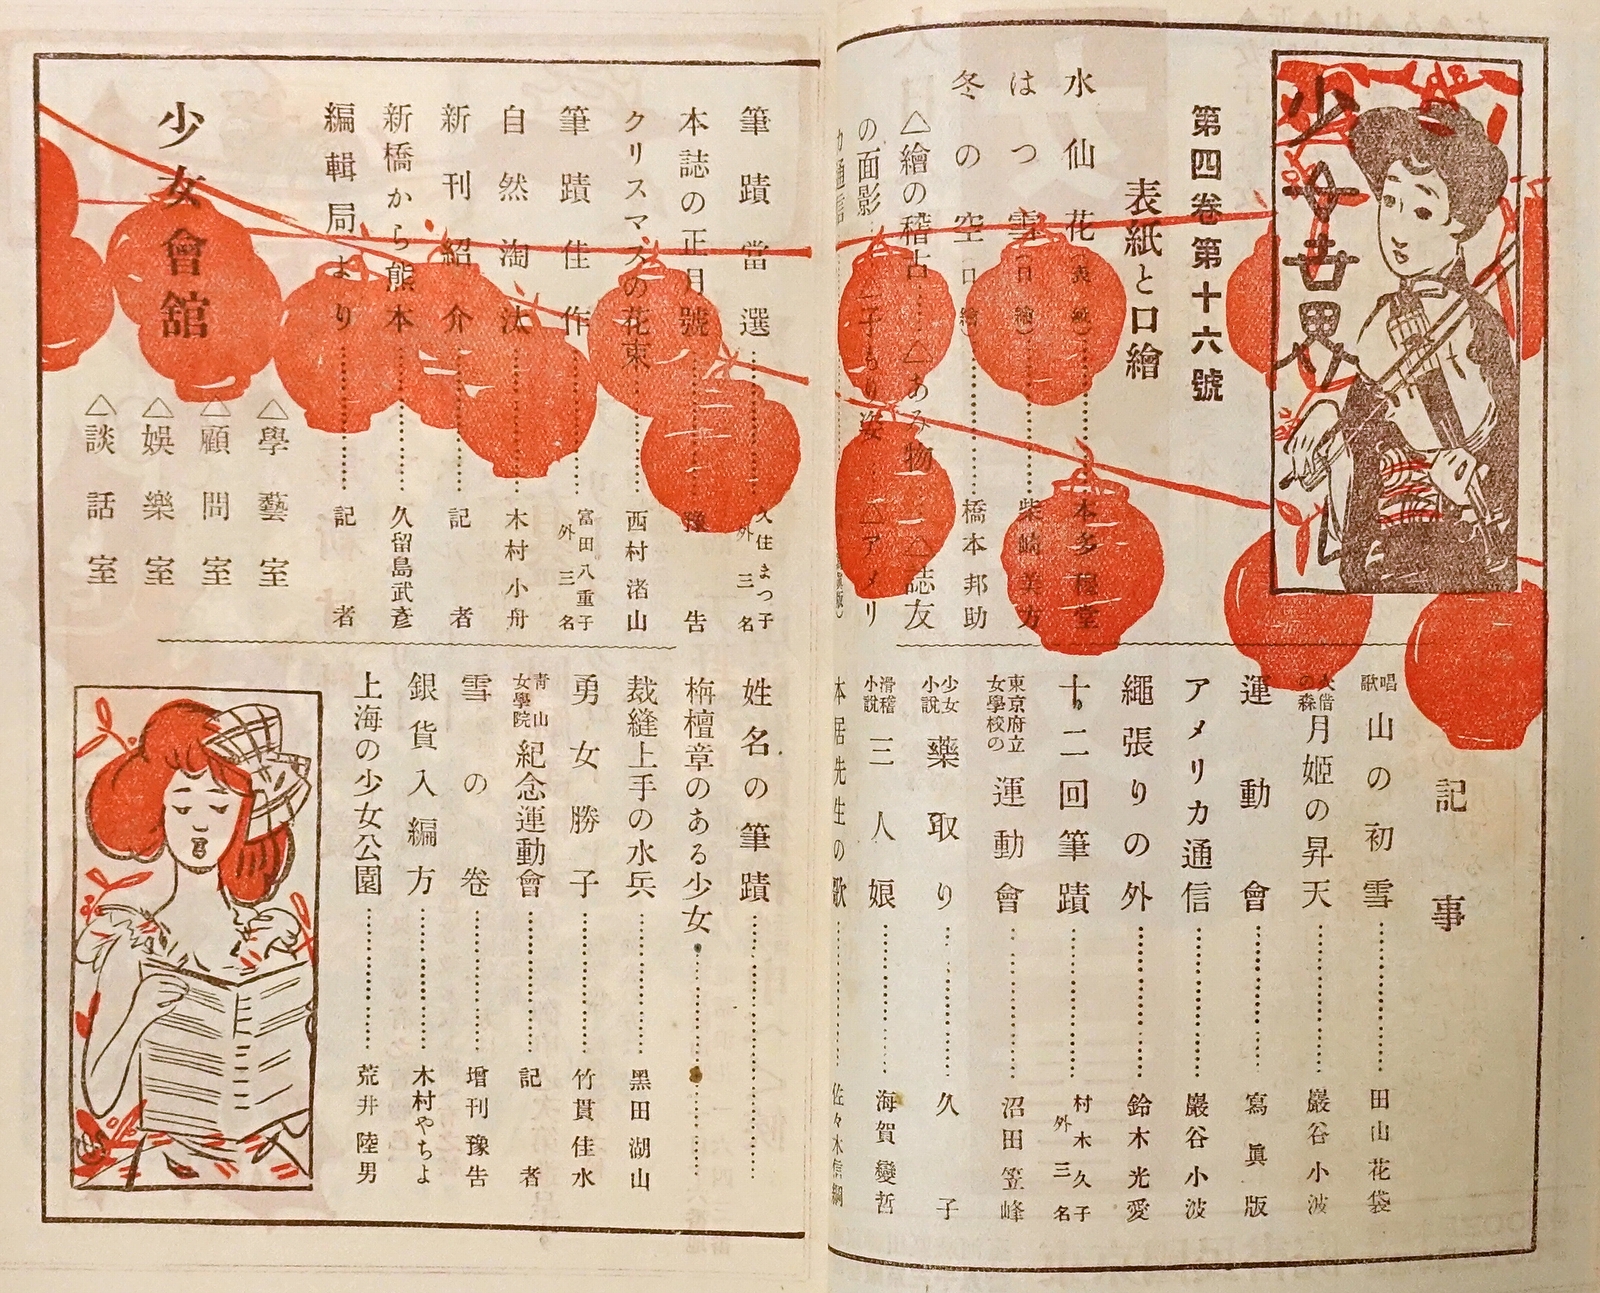 少女世界
第四卷第十六號
表紙と口繪
水仙花(表紙)……本多穆堂
はつ雪(口繪)……柴崎美方
冬の空(口繪)……橋本邦助
△繪の稽古……△あみ物……△誌友
の面影……△子もり姿……△アメリ
カ通信
記事
唱歌 山の初雪……田山花袋
月姫の昇天……巖谷小波
運動會……寫眞版
アメリカ通信……巖谷小波
繩張りの外……鈴木光愛
十二回筆蹟……村木久子 外三名
東京府立女學校の 運動會……沼田笠峰
少女小說 藥取り……久子
滑稽小說 三人娘……海賀變哲
本居先生の歌……佐々木信綱
筆蹟當選……久住まつ子 外三名
本誌の正月號……豫告
クリスマスの花束……西村渚山
筆蹟佳作……富田八重子 外三名
自然淘汰……木村小舟
新刊紹介……記者
新橋から熊本……久留島武彥
編輯局より……記者
少女會舘
△學藝室
△顧問室
△娛樂室
△談話室
姓名の筆蹟……
栴檀章のある少女……
裁縫上手の水兵……黑田湖山
勇女勝子……竹貫佳水
青山女學院 紀念運動會……記者
雪の卷……增刊豫告
銀貨入編方……木村やちよ
上海の少女公園……荒井陸男